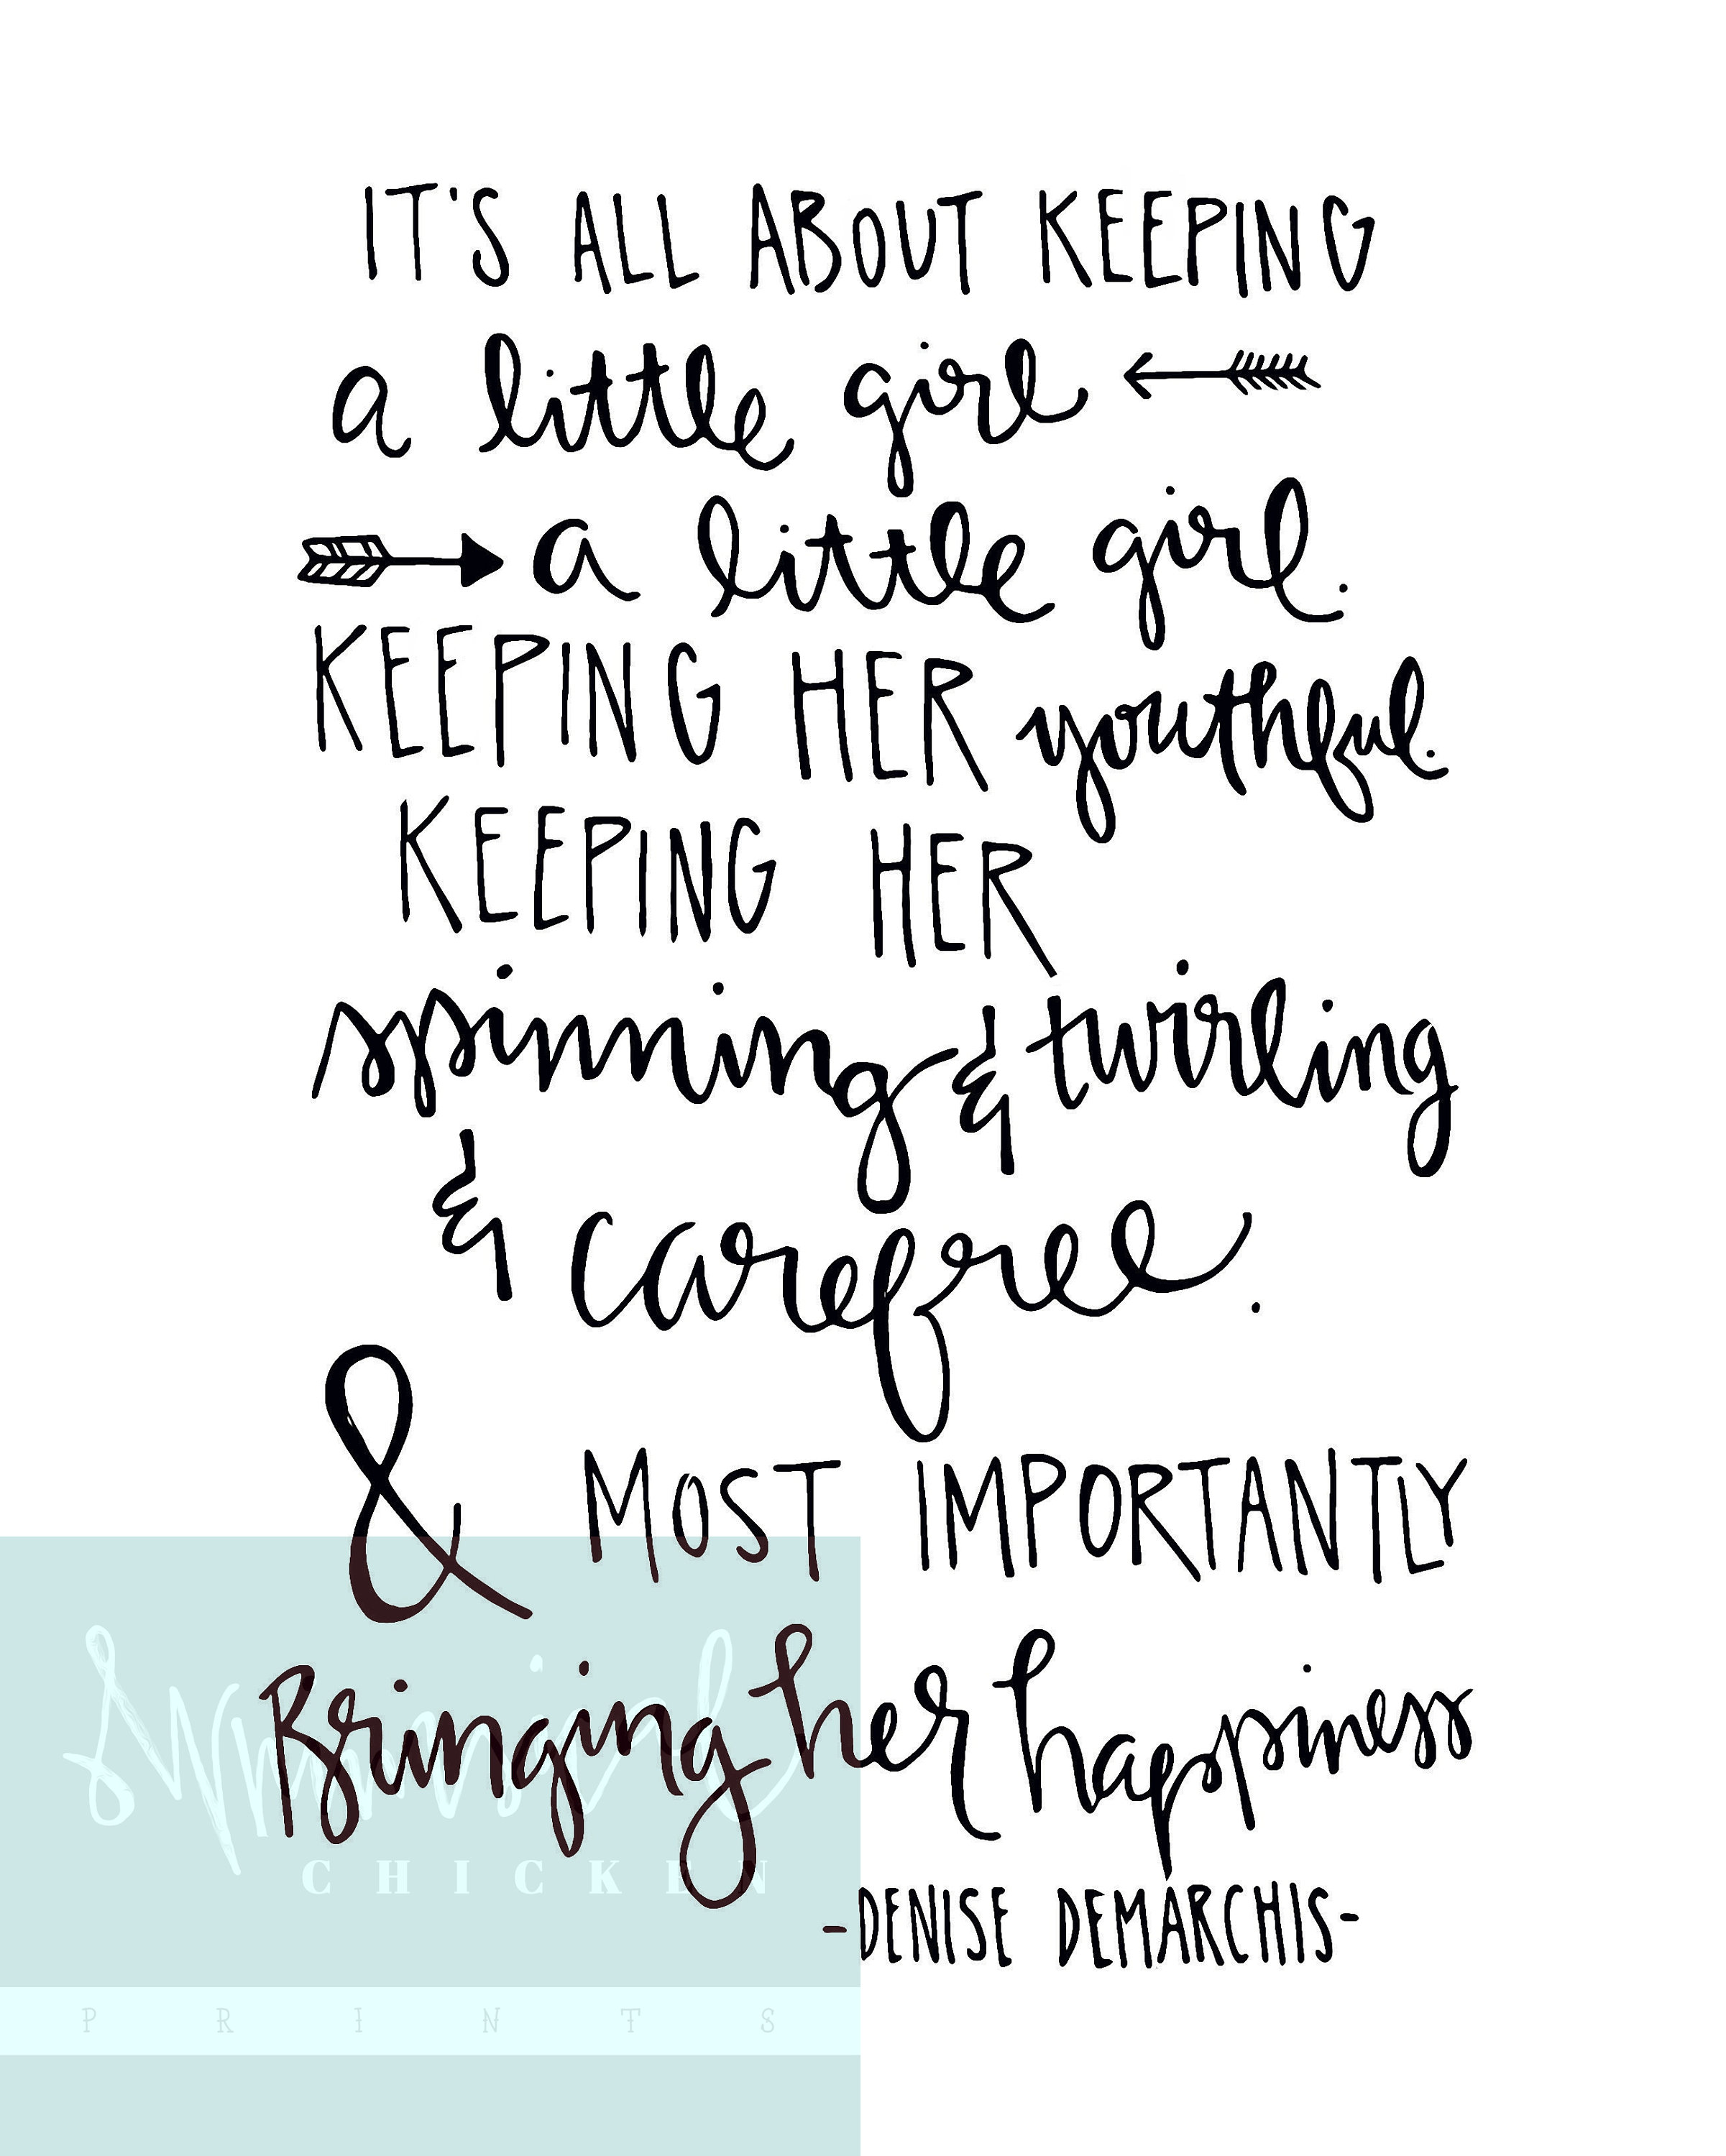 IT'S ALL ABOUT KEEPING
a little girl
a little girl.
KEEPING HER youthful.
KEEPING HER
spinning & twirling
& carefree.
& MOST IMPORTANTLY
Bringing her happiness
CHICKEN
-DENISE DEMARCHIS-
PRINTS